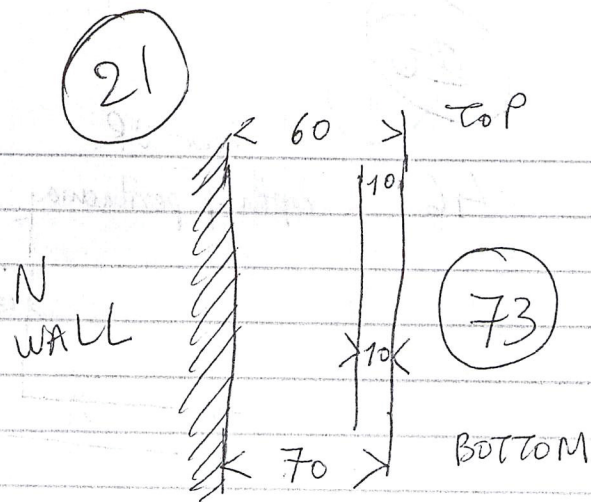 21
60
TOP
10
N
WALL
73
10
70
BOTTOM